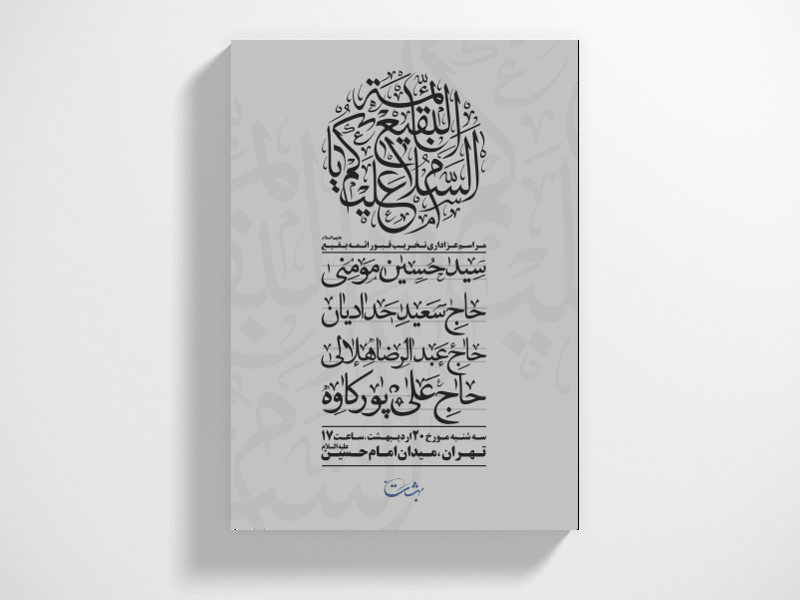 السلام علیکم یا ائمة البقیع
علیهم‌السلام
مراسم عزاداری تخریب قبور ائمه بقیع
سید حسین مومنی
حاج سعید حدادیان
حاج عبدالرضا هلالی
حاج علی پورکاوه
سه شنبه مورخ ۲۰ اردیبهشت، ساعت ۱۷
علیه‌السلام
تهران، میدان امام حسین
بهشت